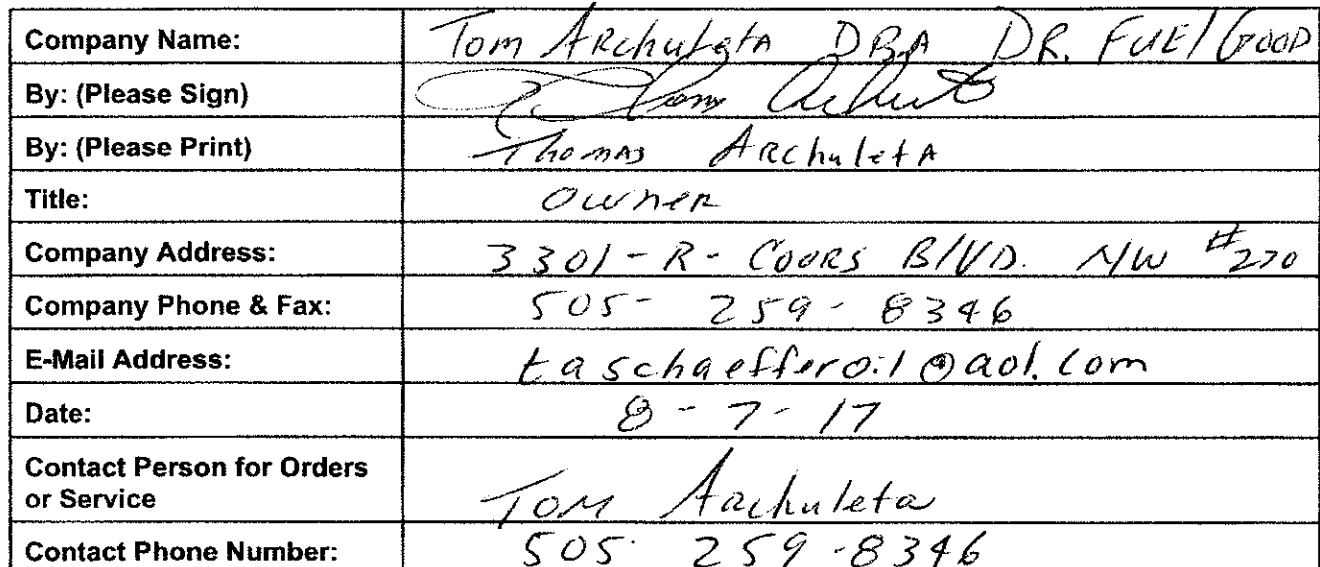 Company Name: Tom Archuleta DBA DR. Fuel Good
By: (Please Sign) Tom Archuleta
By: (Please Print) Thomas Archuleta
Title: Owner
Company Address: 3301-R- Coors Blvd. NW #270
Company Phone & Fax: 505-259-8346
E-Mail Address: taschaefferoil@aol.com
Date: 8-7-17
Contact Person for Orders
or Service Tom Archuleta
Contact Phone Number: 505 259-8346